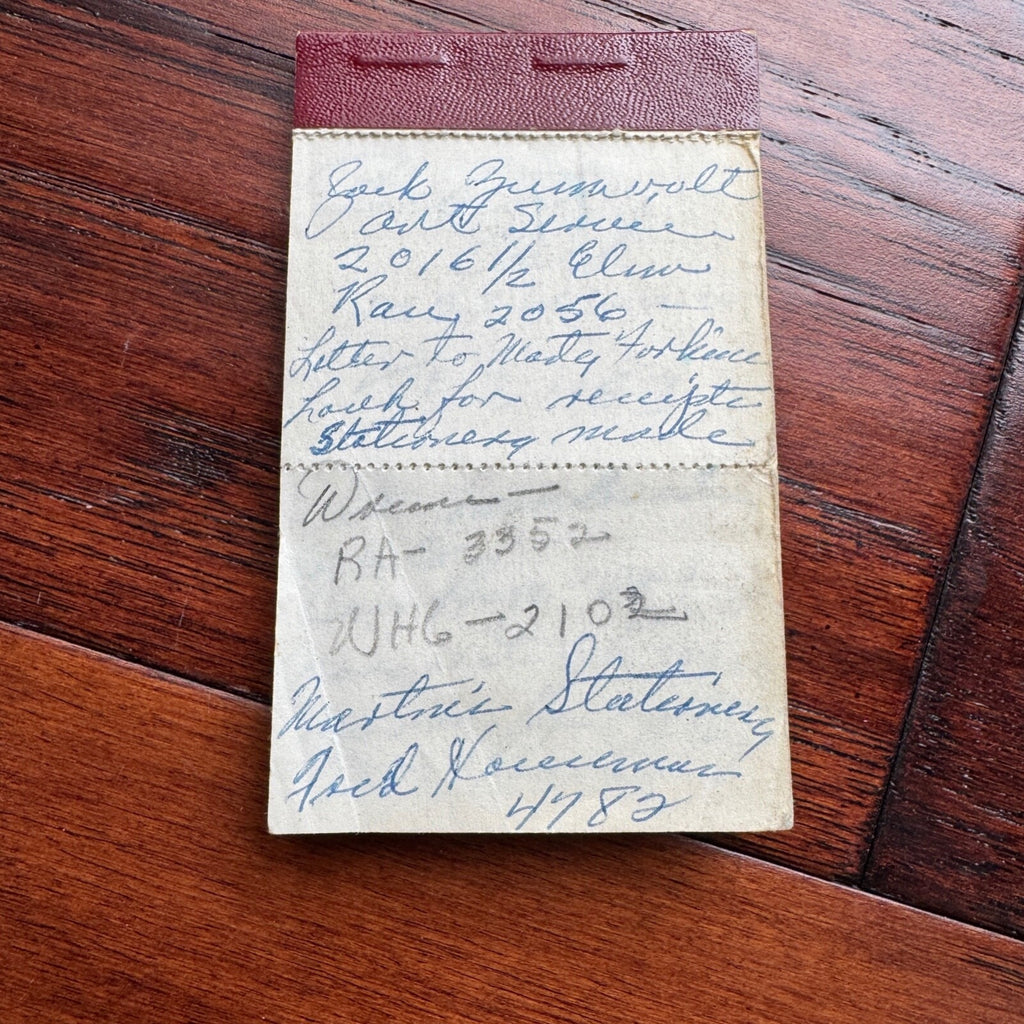 Jack Zumwalt
Art Service
2016 1/2 Elm
Ran, 2056 —
Letter to Marty
Look for receipts
Stationery made
—
RA- 3352
WH6-2102
Martin's Stationery
Fred
4782